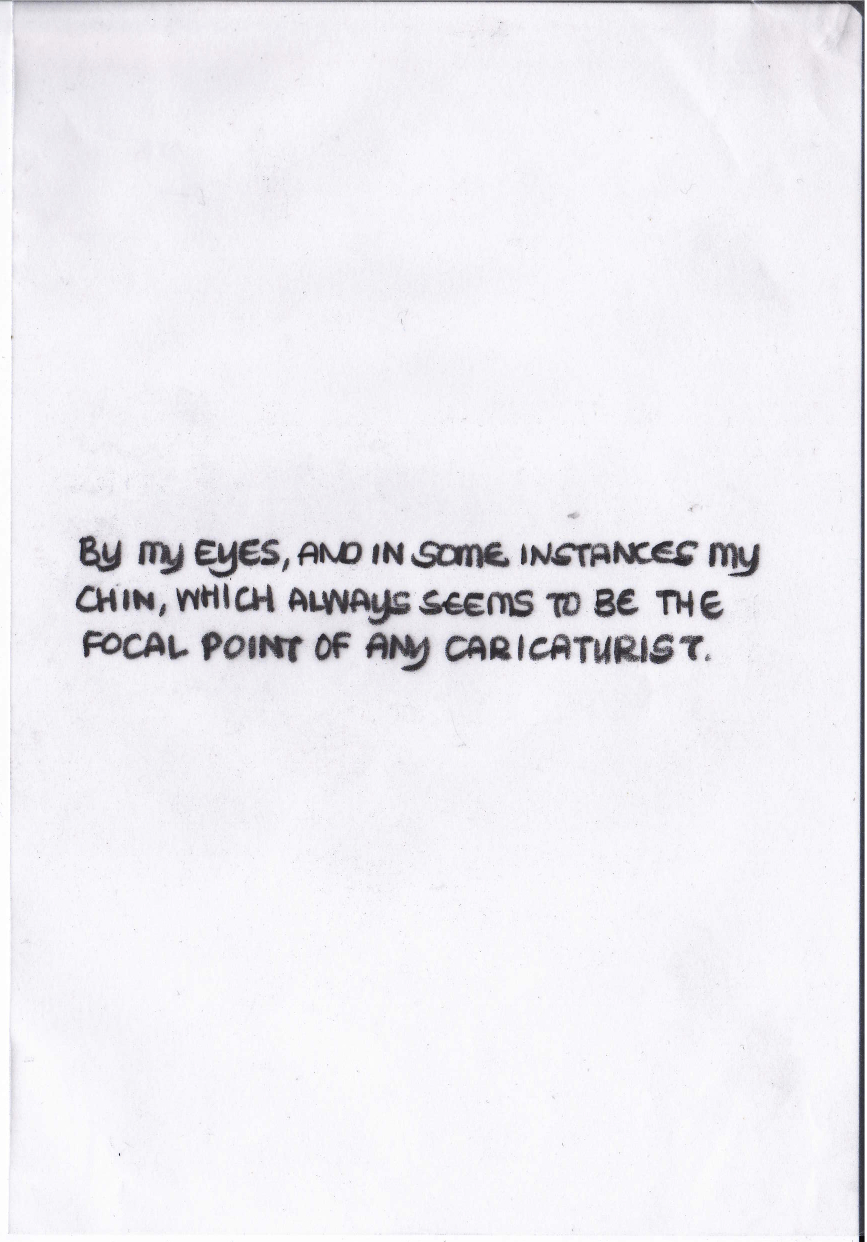 By my EyES, AND IN SOME INSTANCES my
CHIN, WHICH ALWAyS SEEMS TO BE THE
FOCAL POINT OF ANy CARICATURIST.